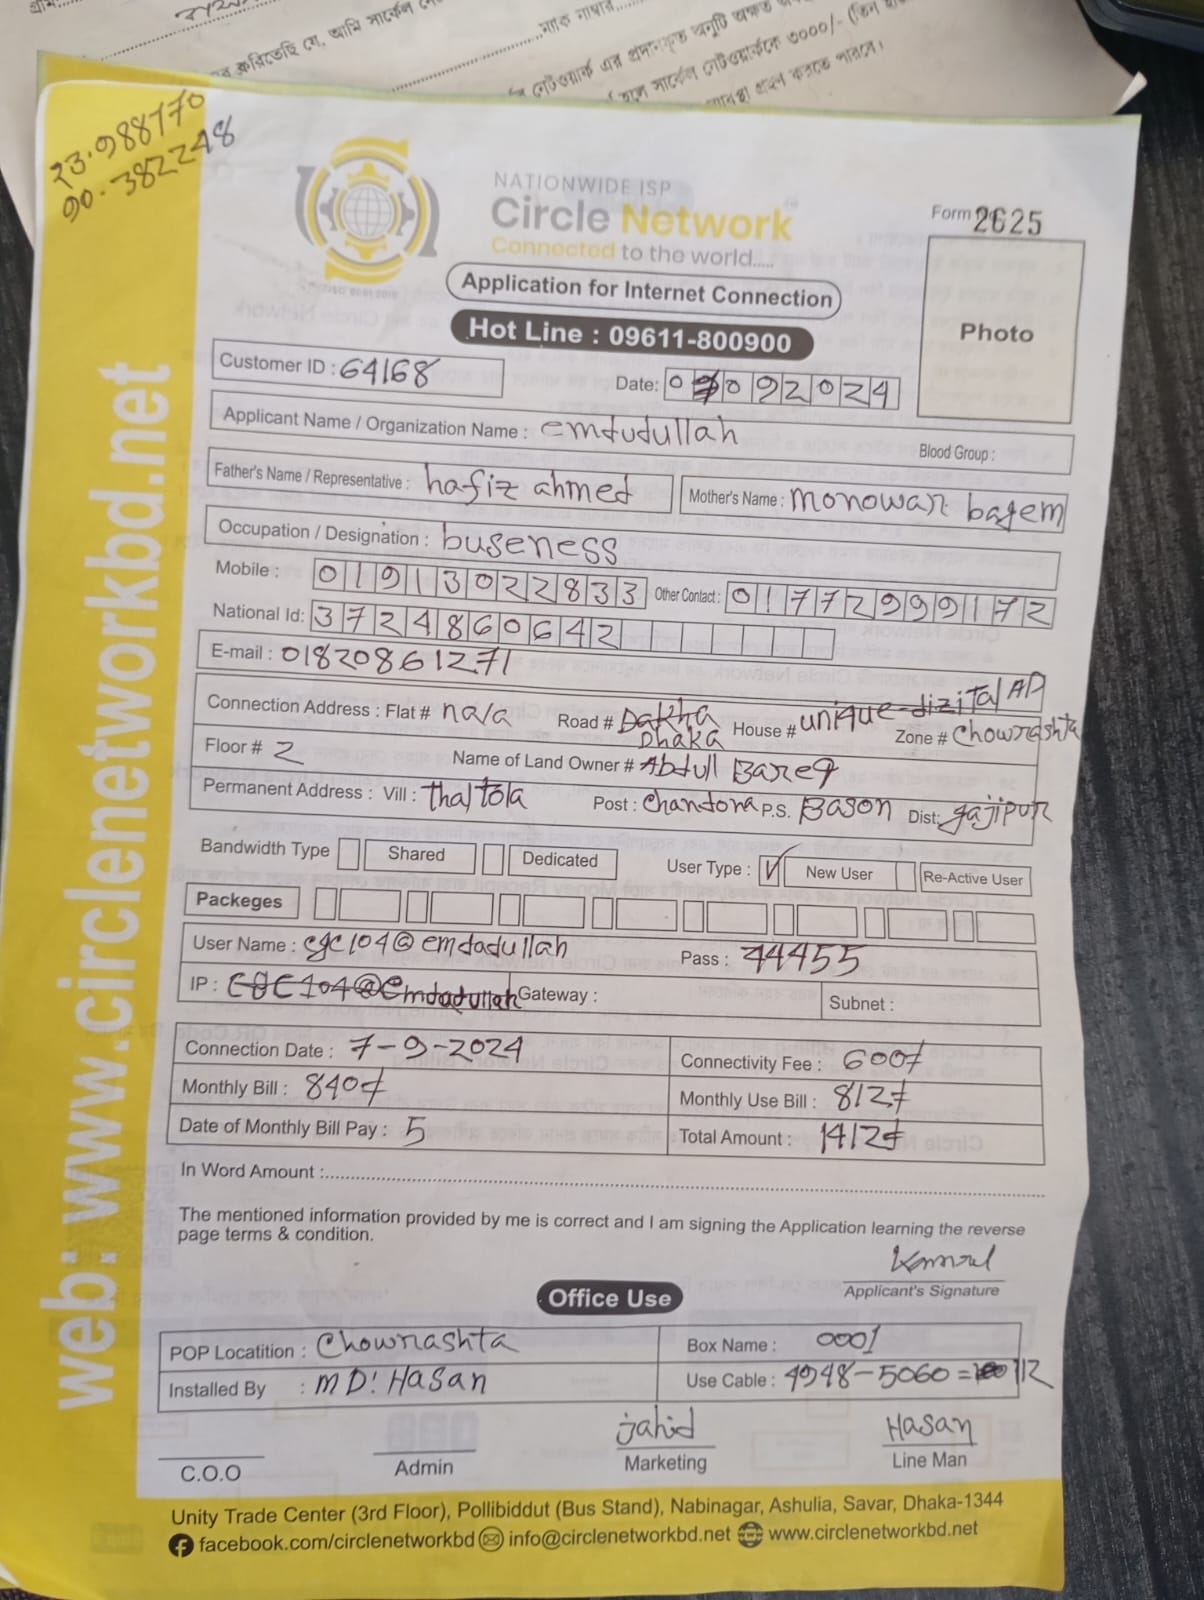 ২৩.৯৮৮৭৭০
৯০.৩৮২২৪৮
NATIONWIDE ISP
Circle Network
Connected to the world.....
Form 2625
Application for Internet Connection
Hot Line : 09611-800900
Photo
Customer ID : 64168
Date: 0 092024
Applicant Name / Organization Name : emdudullah
Blood Group :
Father's Name / Representative : hafiz ahmed
Mother's Name : monowar bagem
Occupation / Designation : buseness
Mobile : 01913022833
Other Contact : 01772999172
National Id: 3724860642
E-mail : 01820861271
Connection Address : Flat # nala Road # Dakha Dhaka House # unique dizital AD Zone # Chowrashta
Floor # 2 Name of Land Owner # Abdull Bareq
Permanent Address : Vill : thaltola Post : Chandora P.S. Bason Dist: gajipur
Bandwidth Type Shared Dedicated User Type : New User Re-Active User
Packeges
User Name : cgc104@emdadullah Pass : 44455
IP : CGC104@emdadullah Gateway : Subnet :
Connection Date : 7-9-2024 Connectivity Fee : 600/-
Monthly Bill : 840/- Monthly Use Bill : 812/-
Date of Monthly Bill Pay : 5 Total Amount : 1412/-
In Word Amount :
The mentioned information provided by me is correct and I am signing the Application learning the reverse
page terms & condition.
Applicant's Signature
Office Use
POP Locatition : Chowrashta Box Name : 0001
Installed By : MD: Hasan Use Cable : 4948-5060= 112
jahid Hasan
C.O.O Admin Marketing Line Man
Unity Trade Center (3rd Floor), Pollibiddut (Bus Stand), Nabinagar, Ashulia, Savar, Dhaka-1344
facebook.com/circlenetworkbd info@circlenetworkbd.net www.circlenetworkbd.net
web: www.circlenetworkbd.net